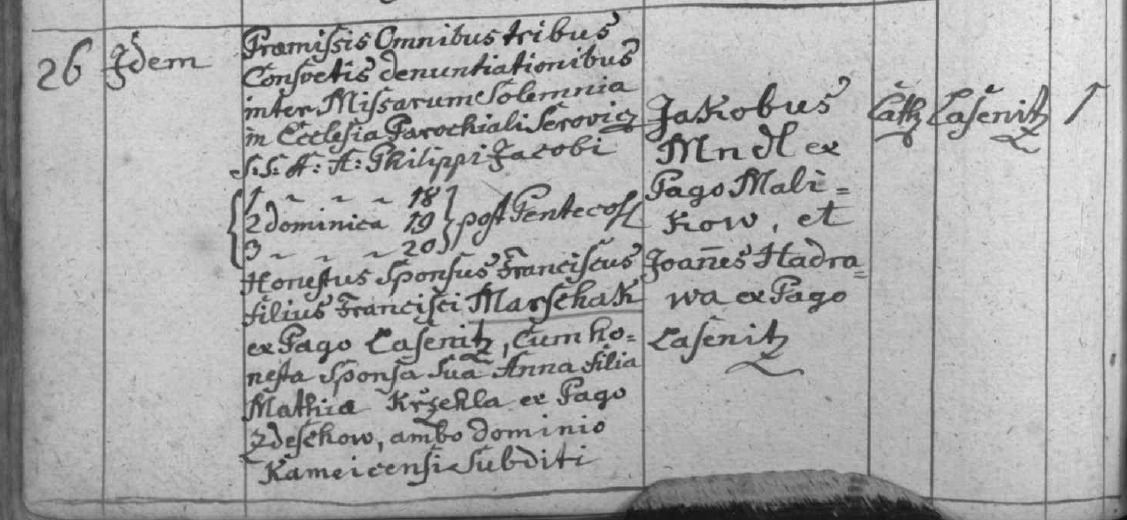 26 Idem
Præmissis Omnibus tribus
Consvetis denuntiationibus
inter Missarum Solemnia
in Ecclesia Parochiali Serovicz
S: S: A: A: Philippi Jacobi
1 " " " 18
2 dominica 19 post Pentecost
3 " " " 20
Honestus Sponsus Franciscus
filius Francisci Marschak
ex Pago Lasenitz, cum ho=
nesta Sponsa sua Anna filia
Mathiæ Kržehla ex Pago
Zdeschow, ambo dominio
Kameicensi Subditi
Jakobus
Mndl ex
Pago Mali=
kow, et
Joan̄es Hadra=
wa ex Pago
Lasenitz
Cath
Lasenitz
1